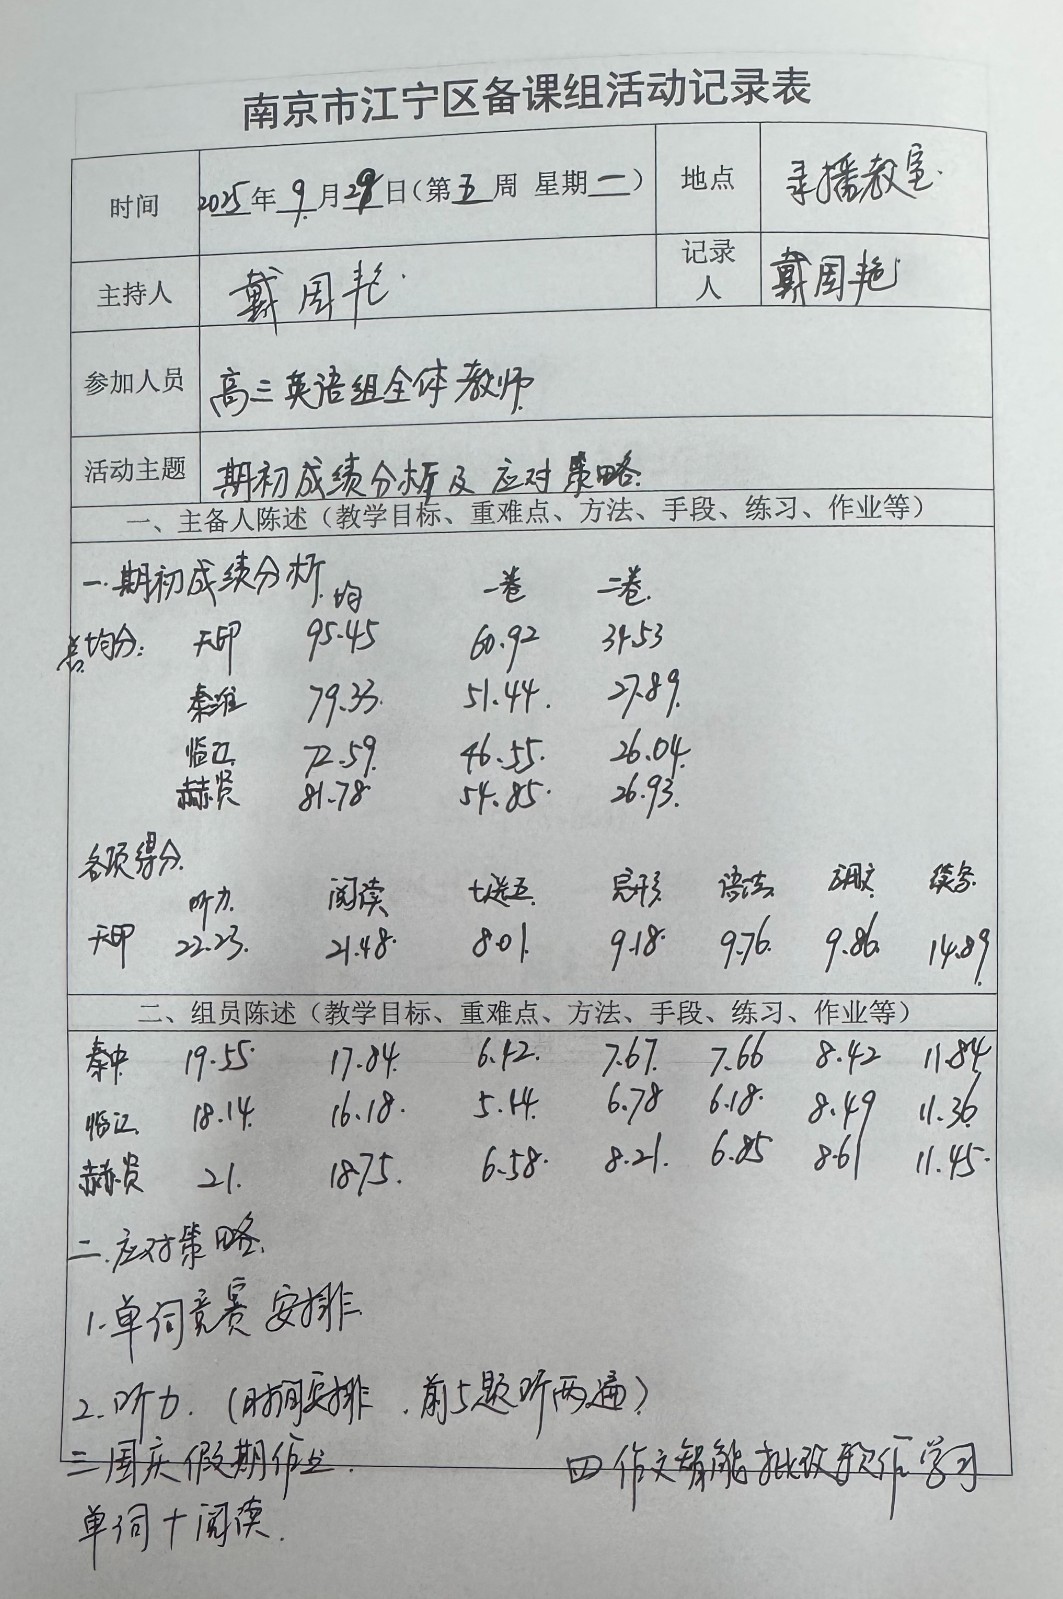 南京市江宁区备课组活动记录表
时间 2025年9月29日(第五周 星期一) 地点 录播教室
主持人 戴周艳 记录人 戴周艳
参加人员 高三英语组全体教师
活动主题 期初成绩分析及应对策略
一、主备人陈述(教学目标、重难点、方法、手段、练习、作业等)
一.期初成绩分析
均 一卷 二卷
总均分: 天印 95.45 60.92 34.53
秦淮 79.33 51.44 27.89
临江 72.59 46.55 26.04
赫贤 81.78 54.85 26.93
各项得分
听力 阅读 七选五 完形 语法 应用文 续写
天印 22.23 21.48 8.01 9.18 9.76 9.86 14.89
二、组员陈述(教学目标、重难点、方法、手段、练习、作业等)
秦中 19.55 17.84 6.42 7.67 7.66 8.42 11.84
临江 18.14 16.18 5.44 6.78 6.18 8.49 11.36
赫贤 21 18.75 6.58 8.21 6.85 8.61 11.45
二.应对策略
1.单词竞赛安排
2.听力.(时间安排,前5题听两遍)
三国庆假期作业
四作文智能批改软件学习
单词+阅读